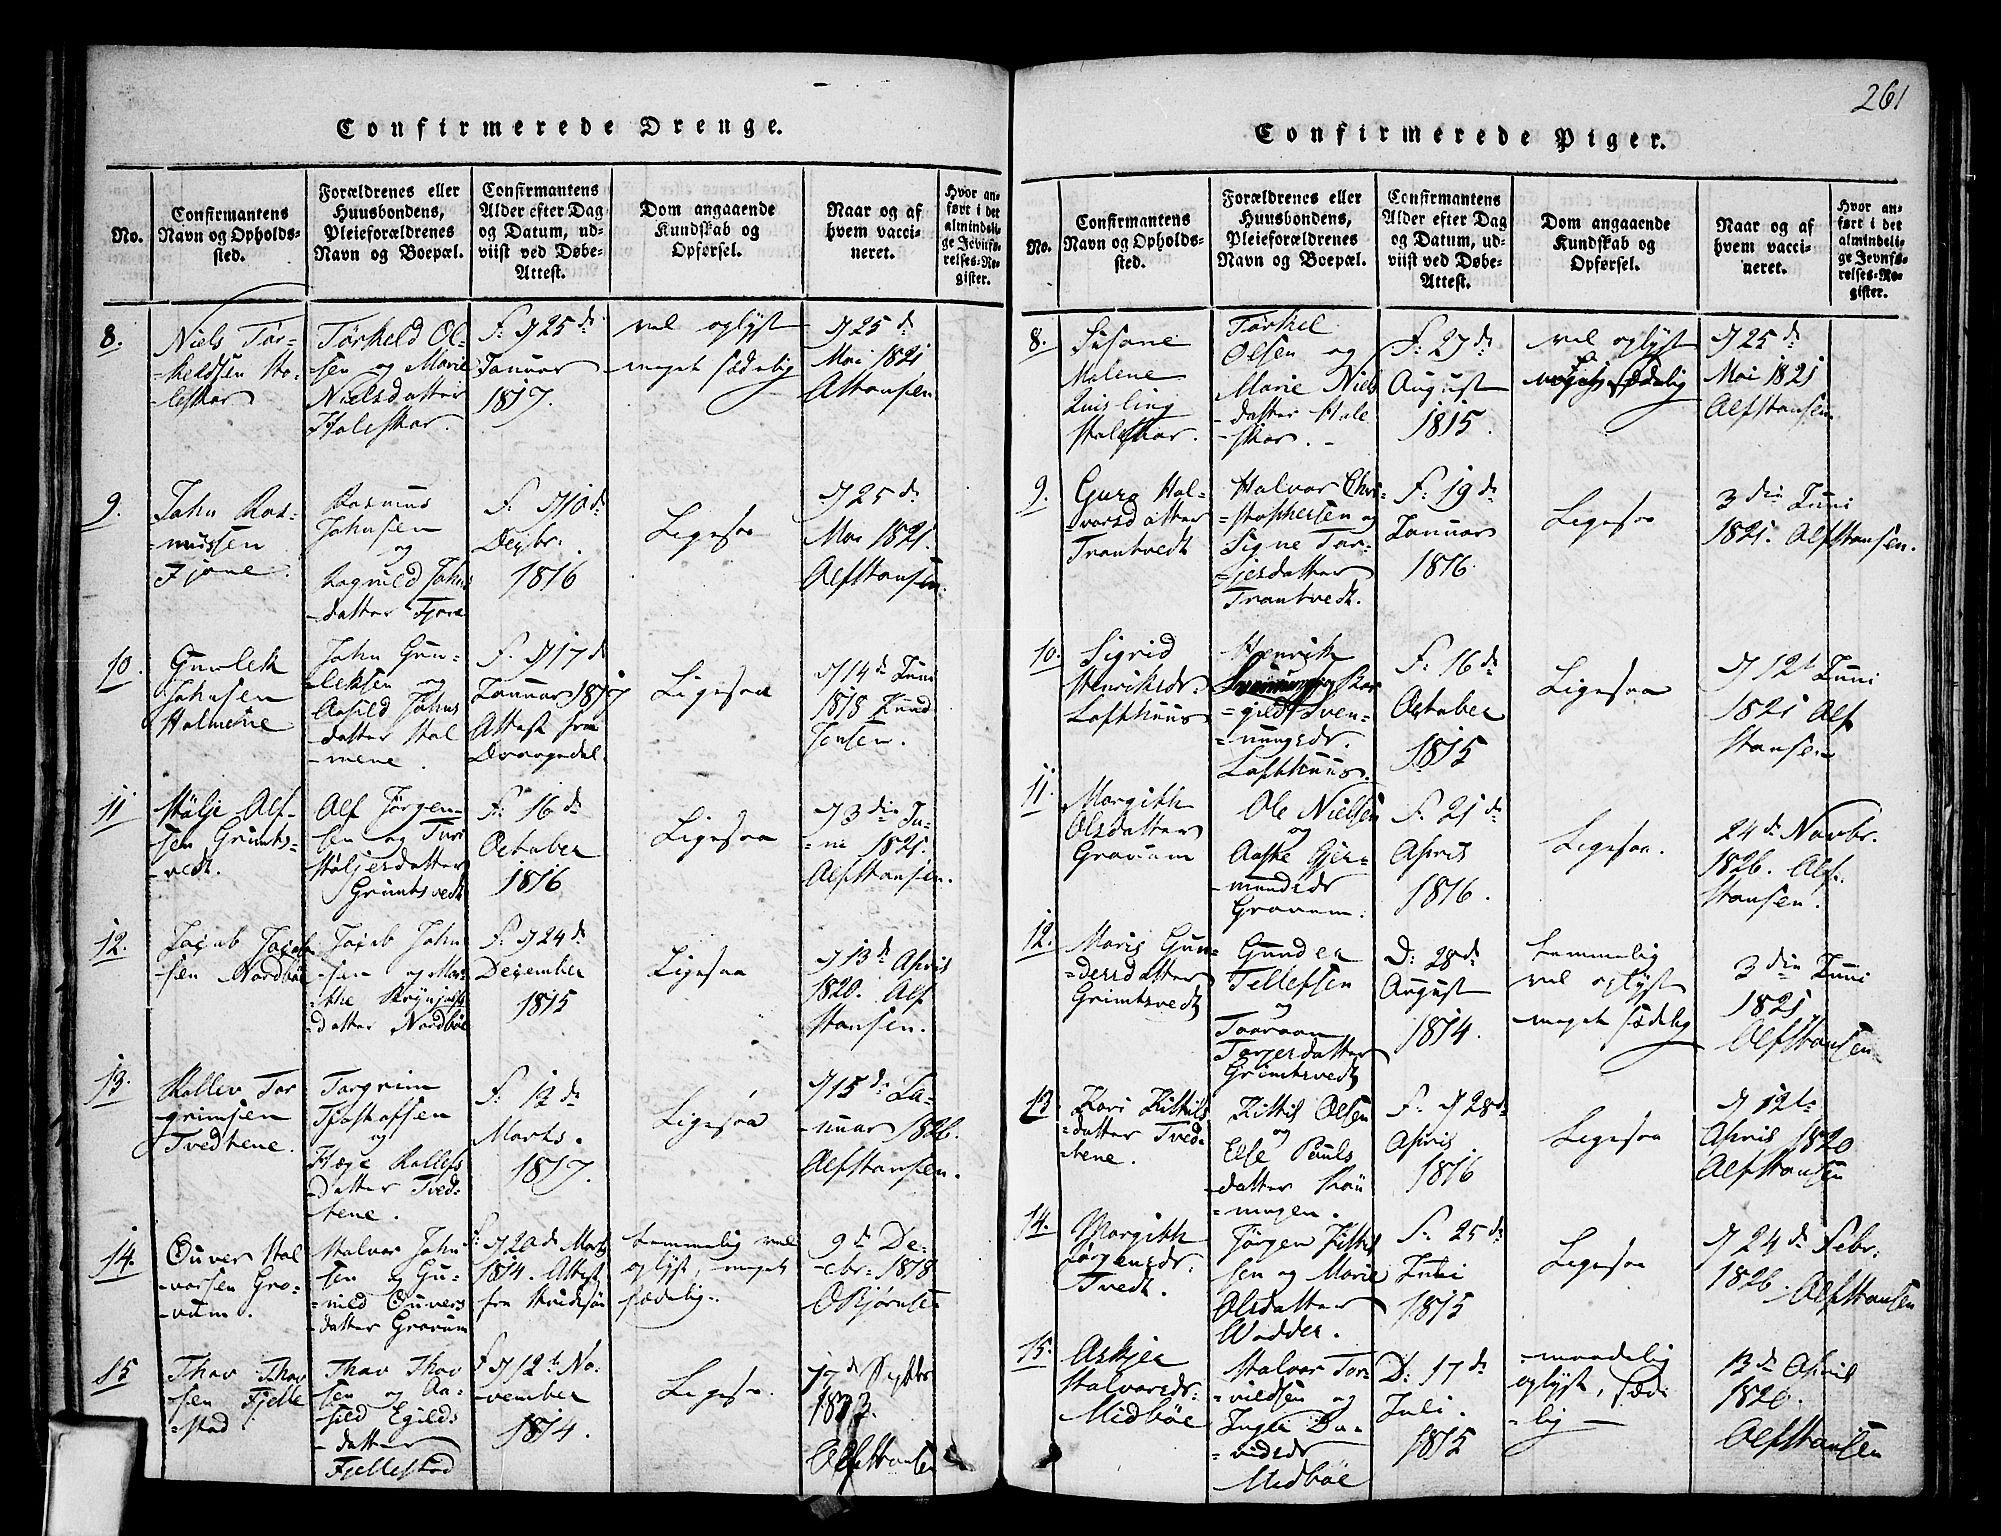 261
Confirmerede Drenge.
No.
Confirmantens
Navn og Opholds-
sted.
Forældrenes eller
Huusbondens,
Pleieforældrenes
Navn og Boepæl.
Confirmantens
Alder efter Dag
og Datum, ud-
viist ved Døbe-
Attest.
Dom angaaende
Kundskab og
Opførsel.
Naar og af
hvem vacci-
neret.
Hvor an-
ført i det
almindeli-
ge Jevnfø-
relses-Re-
gister.
8.
Niels Tor-
=keldsen Ho-
leskar
Torkeld Ol-
sen og Marie
Nielsdatter
Holeskar.
F. d 25 d.
Januar
1817.
vel oplyst
meget sædelig
d 25 d.
Mai 1821
Alf Hansen
9.
John Ras-
=mussen
Fjone.
Rasmus
Johnsen
og
Ragnild Johns
=datter Fjone
F. d 10 d.
Decbr.
1816
Ligesaa
d 25 d.
Mai 1821.
Alf Hansen.
10.
Gunlek
Johnsen
Holmene
John Gun-
leksen og
Aasild Johns
=datter Hol
=mene.
F. d 17 d
Januar 1817
Attest fra
Draagedal.
Ligesaa
d 14 d. Juni
1818 Knud
Jensen.
11
Alf-
sen Grimts-
=vedt.
Alf Jørgen-
sen og Turi
Grimtsvedt
F. 16 d.
October
1816
Ligesaa
d 3 die Ju-
=ni 1821.
Alf Hansen.
12.
Jacob Jacob
sen Nordbøe
Jacob John
=sen og Mar-
=the
=datter Nordbøe
F. d 24 d.
December
1815
Ligesaa
d 13 d. April
1820. Alf
Hansen.
13.
Rollev Tor
grimsen
Tvedtene.
Torgrim
og
Hæge Rollefs
=datter Tved-
=tene.
F. 12 d.
Marts.
1817.
Ligesaa
d 15 d. Ja-
=nuar 1826.
Alf Hansen.
14.
Ouver Hal
vorsen Gro-
=vum.
Halvor John
sen og Gu-
=nild Ouvers
datter Grovum
F. d 20 d. Marts
1814. Attest
fra
temmelig vel
oplyst, meget
sædelig.
9 d. De-
=cbr. 1818
O Bjørnse
15
Thor Thor
sen Fjelle
=stad
Thor Thor
sen og Aa-
sild Egilds
=datter
Fjellestad
F. d 12 t. No-
vember
1814.
Ligesaa.
17 d.
Alf Hansen
Confirmerede Piger.
No.
Confirmantens
Navn og Opholds-
sted.
Forældrenes eller
Huusbondens,
Pleieforældrenes
Navn og Boepæl.
Confirmantens
Alder efter Dag
og Datum, ud-
viist ved Døbe-
Attest.
Dom angaaende
Kundskab og
Opførsel.
Naar og af
hvem vacci-
neret.
Hvor an-
ført i det
almindeli-
ge Jevnfø-
relses-Re-
gister.
8.
Susone
Malene
Quisling
Holeskar.
Torkel
Olsen og
Marie Niels
datter Hole
=skar.
F. 27 d.
August
1815.
vel oplyst
sædelig
d 25 d.
Mai 1821
Alf Hansen
9.
Guro Hal-
=vorsdatter
Trontvedt
Halvor Chri-
=stophersen og
Signe Tor-
=jersdatter
Trontvedt.
F. 19 d.
Januar
1816.
Ligesaa
3 die Juni
1821. Alf Hansen.
10.
Sigrid
Henriksdr.
Lofthuus
Henrik
=gild Sven-
=nungsdr.
Lofthuus.
F. 16 d.
October
1815
Ligesaa
d 12 t. Juni
1821 Alf
Hansen
11.
Margith
Olsdatter
Grovum
Ole Nielsen
og
Aaste Gjer-
=mundsdr
Grovum.
F. 21 d.
April
1816.
Ligesaa.
24 d. Novbr.
1826. Alf-
Hansen.
12.
Maris Gun-
=dersdatter
Grimtsvedt
Gunder
Tellefsen
og
Torjersdatter
Grimtsvedt
D. 28 d.
August
1814.
temmelig
vel oplyst
meget sædelig
3 die Juni
1821
Alf Hansen
13
Kari Kittils
=datter Tved-
=tene.
Kittil Olsen
og
Else Pouls
=datter
F. d 28 d.
April
1816
Ligesaa
d 12 t.
April 1820
Alf Hansen
14.
Margith
Jørgensdr.
Tvedt.
Jørgen Kittel
sen og Marie
Olsdatter
Wadder.
F. 25 d.
Juli
1815
Ligesaa
d 24 d. Febr.
1826. Alf Hansen
15.
Askjer
Halvorsdr.
Midbøe
Halvor Tor-
Da-
=vidsdr
Midbøe
D. 17 d.
Juli.
1815
=maadelig
oplyst, sæde
=lig
13 d. April
1820.
Alf Hansen